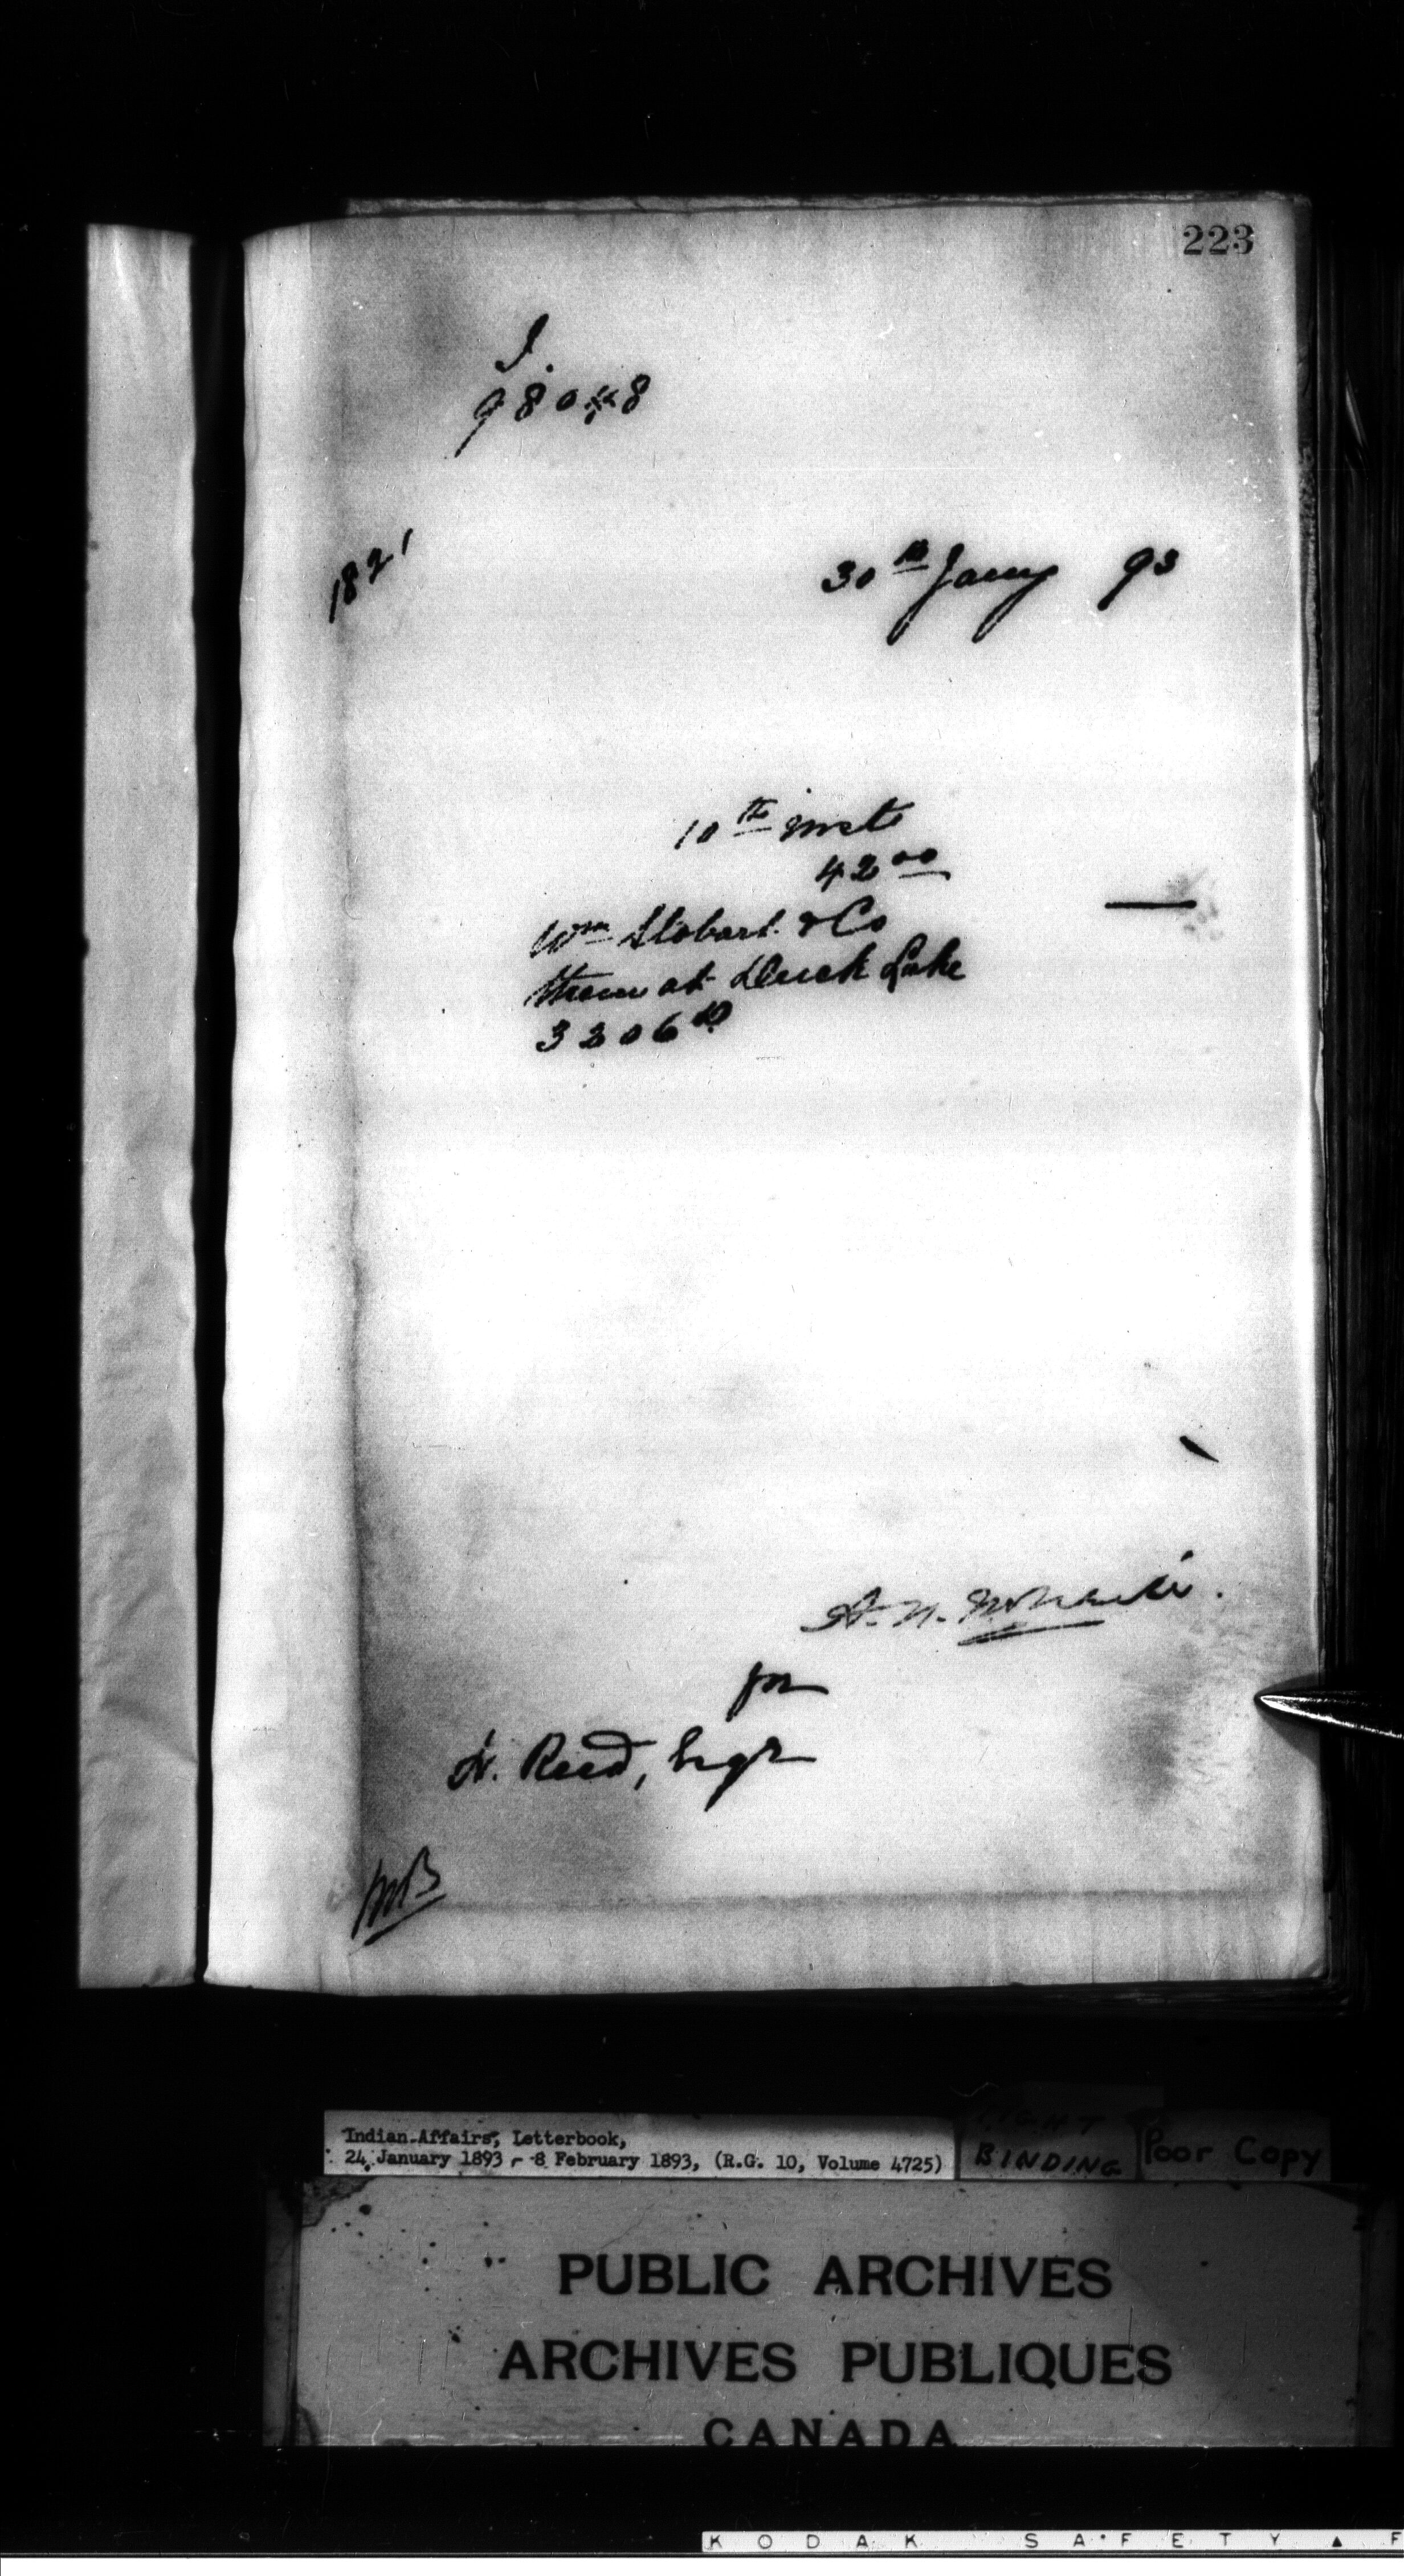 223
I.
98048
1821
30th Jany 93
10th inst
42 00
Wm Stobart & Co
at Duck Lake
3206
A. N.
for
H. Reed, Esqr
MB
Indian Affairs, Letterbook,
24 January 1893 - 8 February 1893, (R.G. 10, Volume 4725)
TIGHT
BINDING
Poor Copy
PUBLIC ARCHIVES
ARCHIVES PUBLIQUES
CANADA
KODAK SAFETY ▲ F